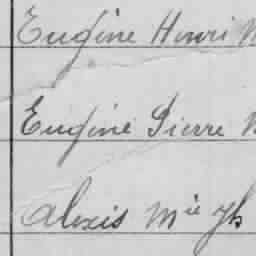 Eugène Henri
Eugène Pierre
Alexis Mie Jh